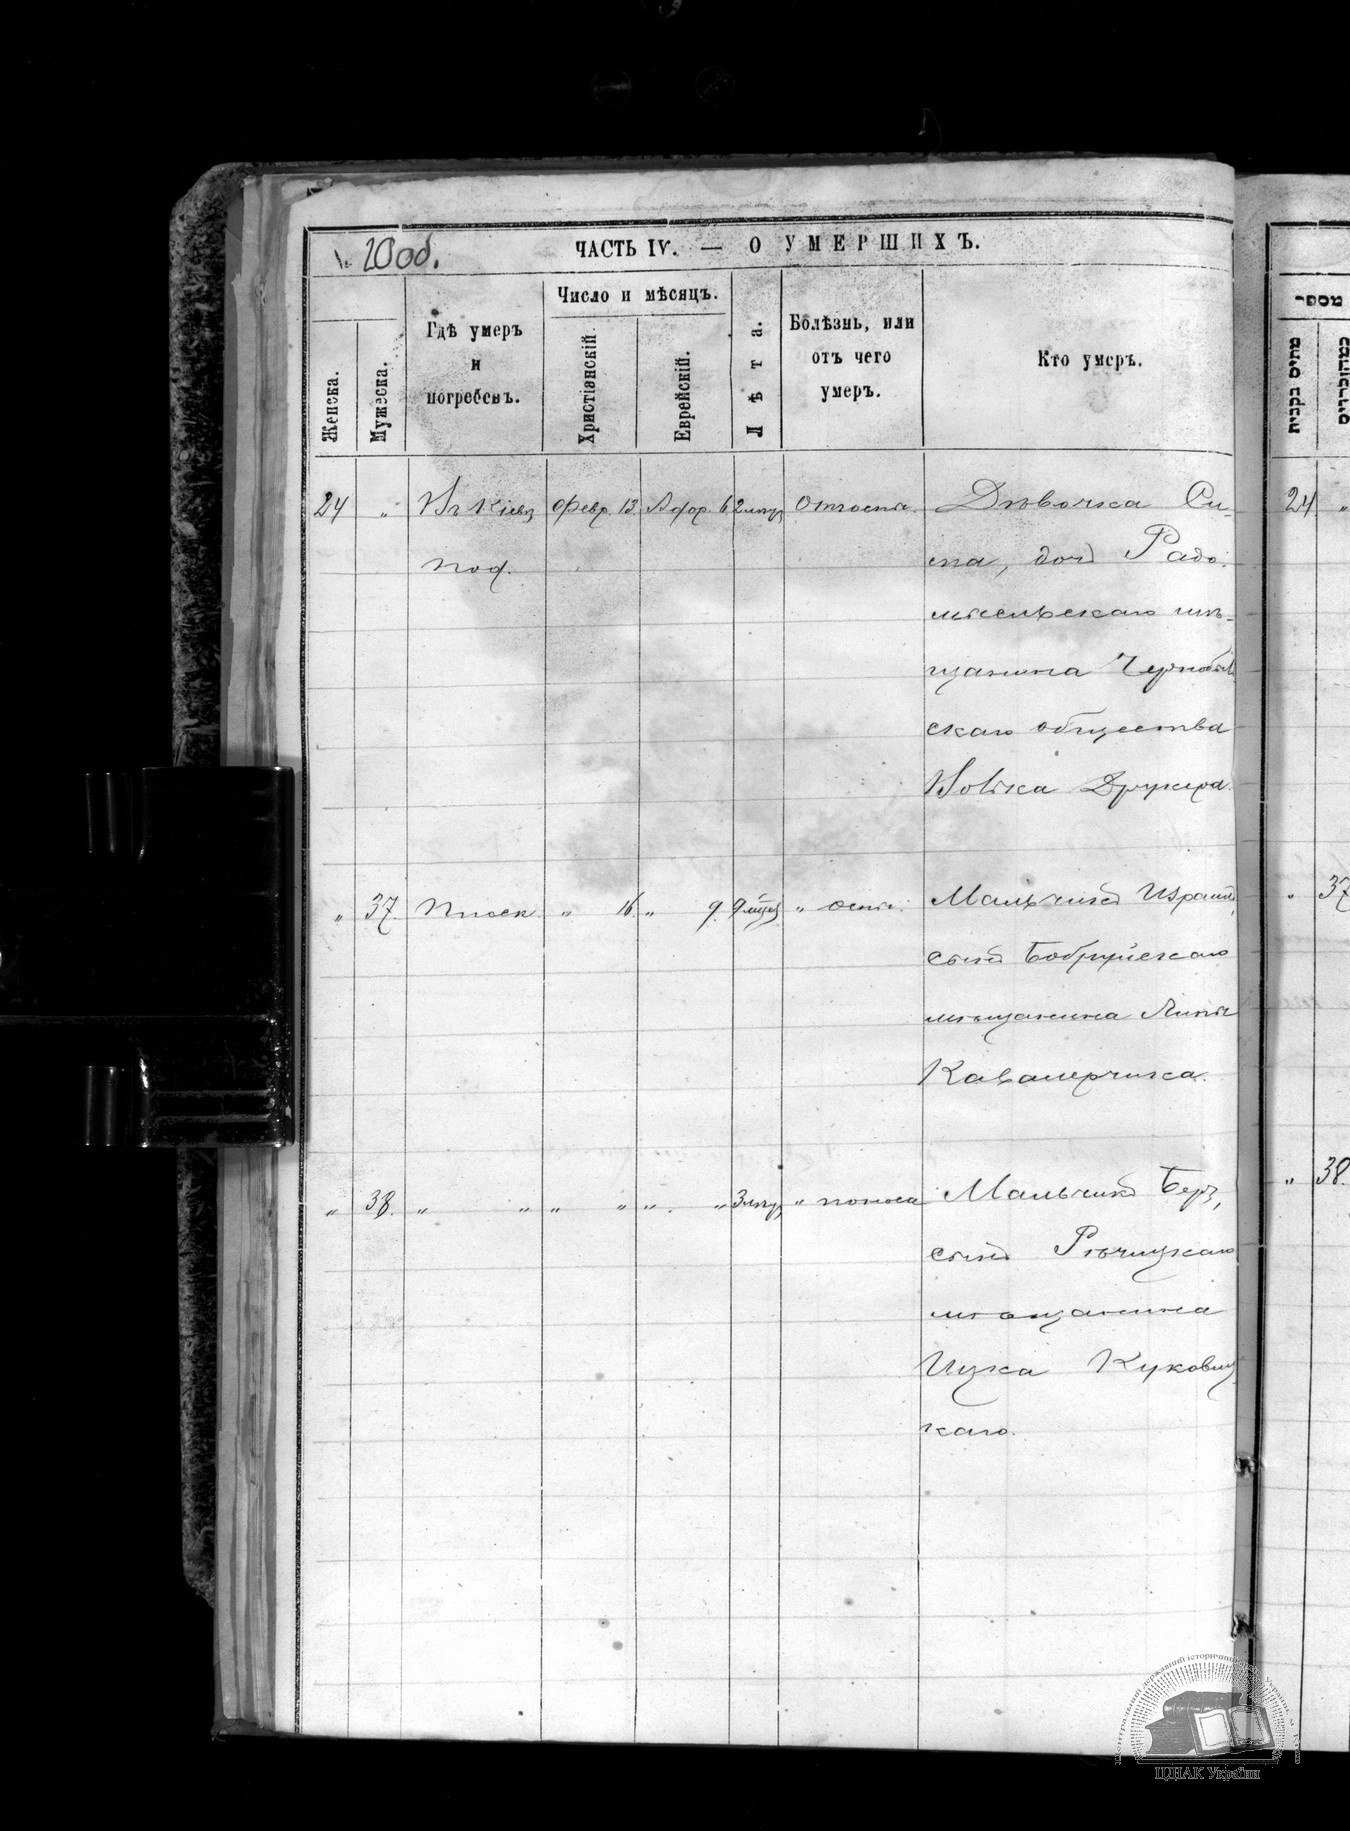 20 об.
ЧАСТЬ IV. — О УМЕРШИХЪ.
Женска.
Мужеска.
Гдѣ умеръ
и
погребенъ.
Число и мѣсяцъ.
Христіанскій.
Еврейскій.
Лѣта.
Болѣзнь, или
отъ чего
умеръ.
Кто умеръ.
24 „ Въ Кіевѣ Февр. 13. 6 2 От оспы. Дѣвочка Си-
дочь Радо-
мысльскаго мѣ-
щанина Чернобыл
скаго общества
Вовка
„ 37. „ 16. „ 9. 9 „ оспы. Мальчикъ Израиль,
сынъ Бобруйскаго
мѣщанина Липы
Кавалерчика.
„ 38. „ „ „ „ „ „ 3 „ поноса Мальчикъ Беръ,
сынъ Рѣчицкаго
мѣщанина
Ицка Куковиц
каго.
מספר
24 „
„ 37
„ 38.
ЦДІАК України